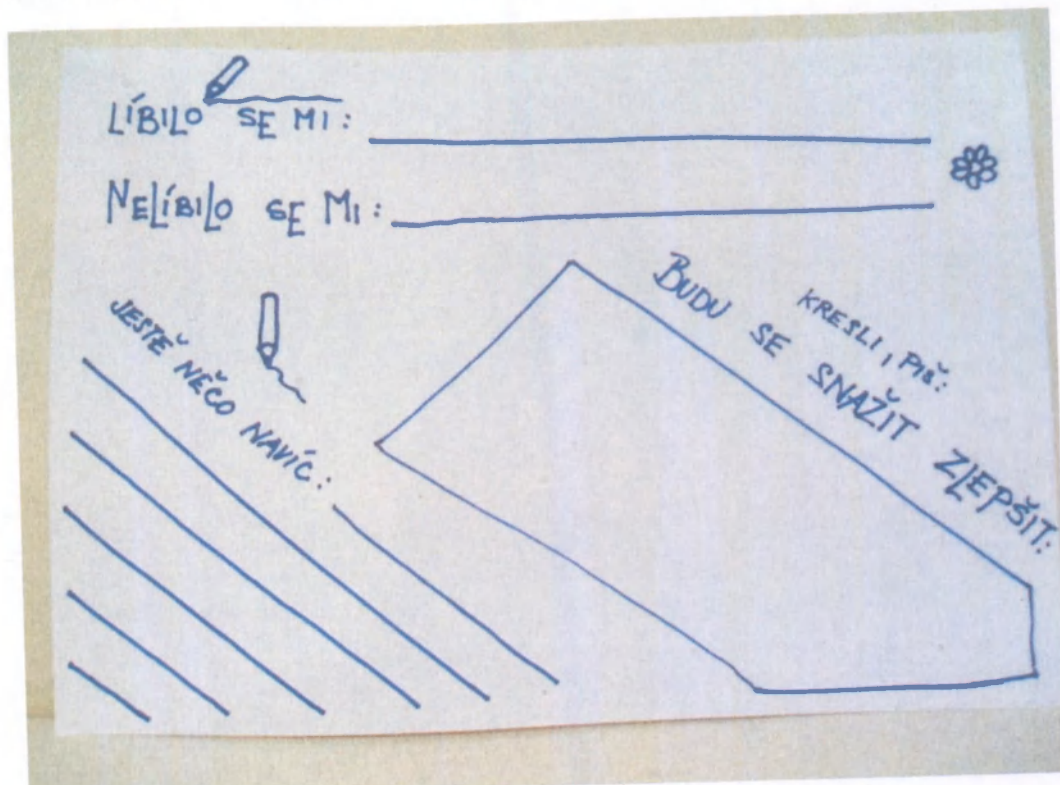 LÍBILO SE MI:
NELÍBILO SE MI:
JESTĚ NĚČO NAVÍC:
KRESLI, PIŠ:
BUDU SE SNAŽIT ZLEPŠIT: